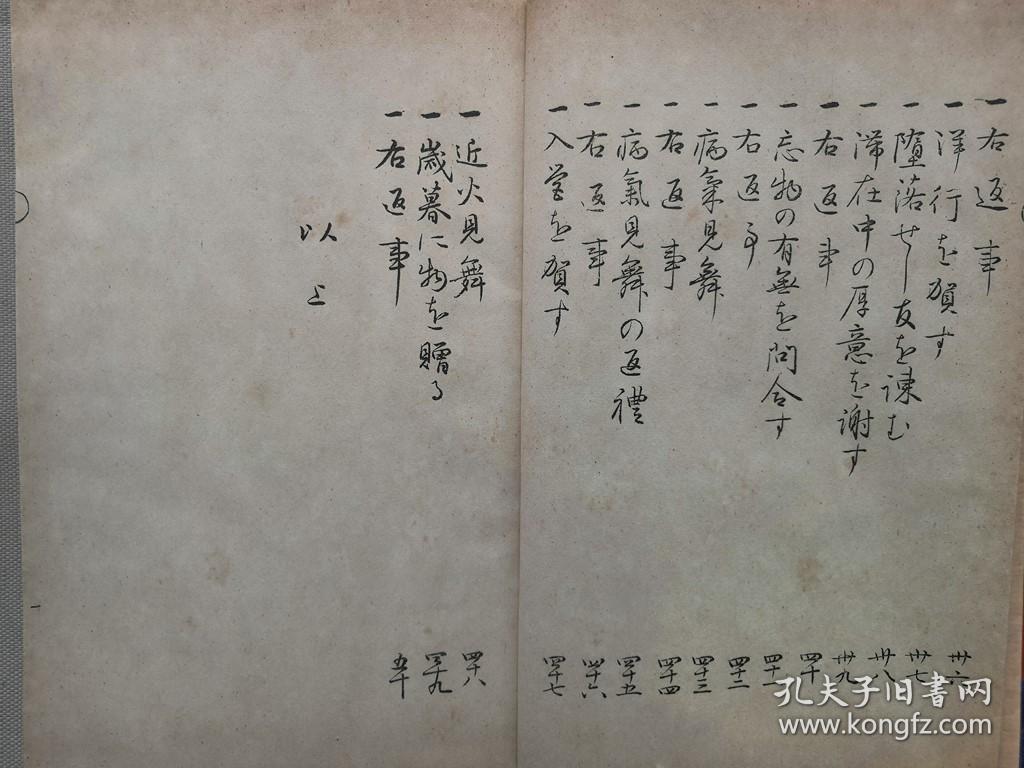 一右返事 卅六
一洋行を賀す 卅七
一墮落せし友を諫む 卅八
一滞在中の厚意を謝す 卅九
一右返事 四十
一忘物の有無を問合す 四十一
一右返事 四十二
一病氣見舞 四十三
一右返事 四十四
一病氣見舞の返禮 四十五
一右返事 四十六
一入学を賀す 四十七
一近火見舞 四十八
一歳暮に物を贈る 四十九
一右返事 五十
以上
孔夫子旧书网
www.kongfz.com